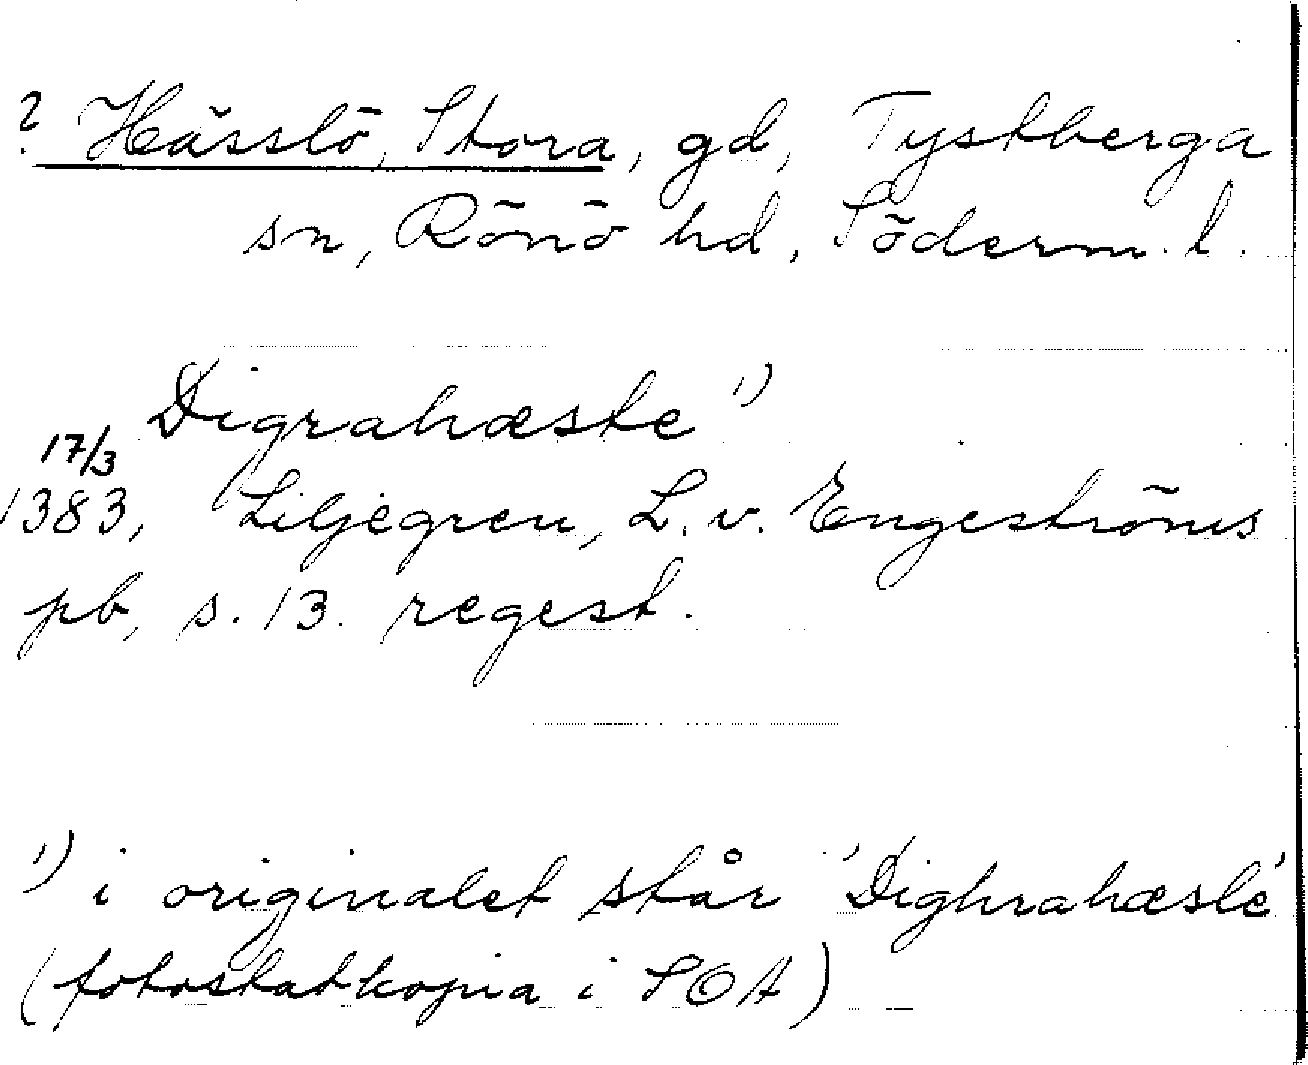 ? Hässlö, Stora, gd, Tystberga
sn, Rönö hd, Söderm. l.
Digrahæste ¹)
17/3
1383, Liljegren, L. v. Engeströms
pb, s. 13. regest.
¹) i originalet står 'Dighrahæsle'
(fotostatkopia i SOA)